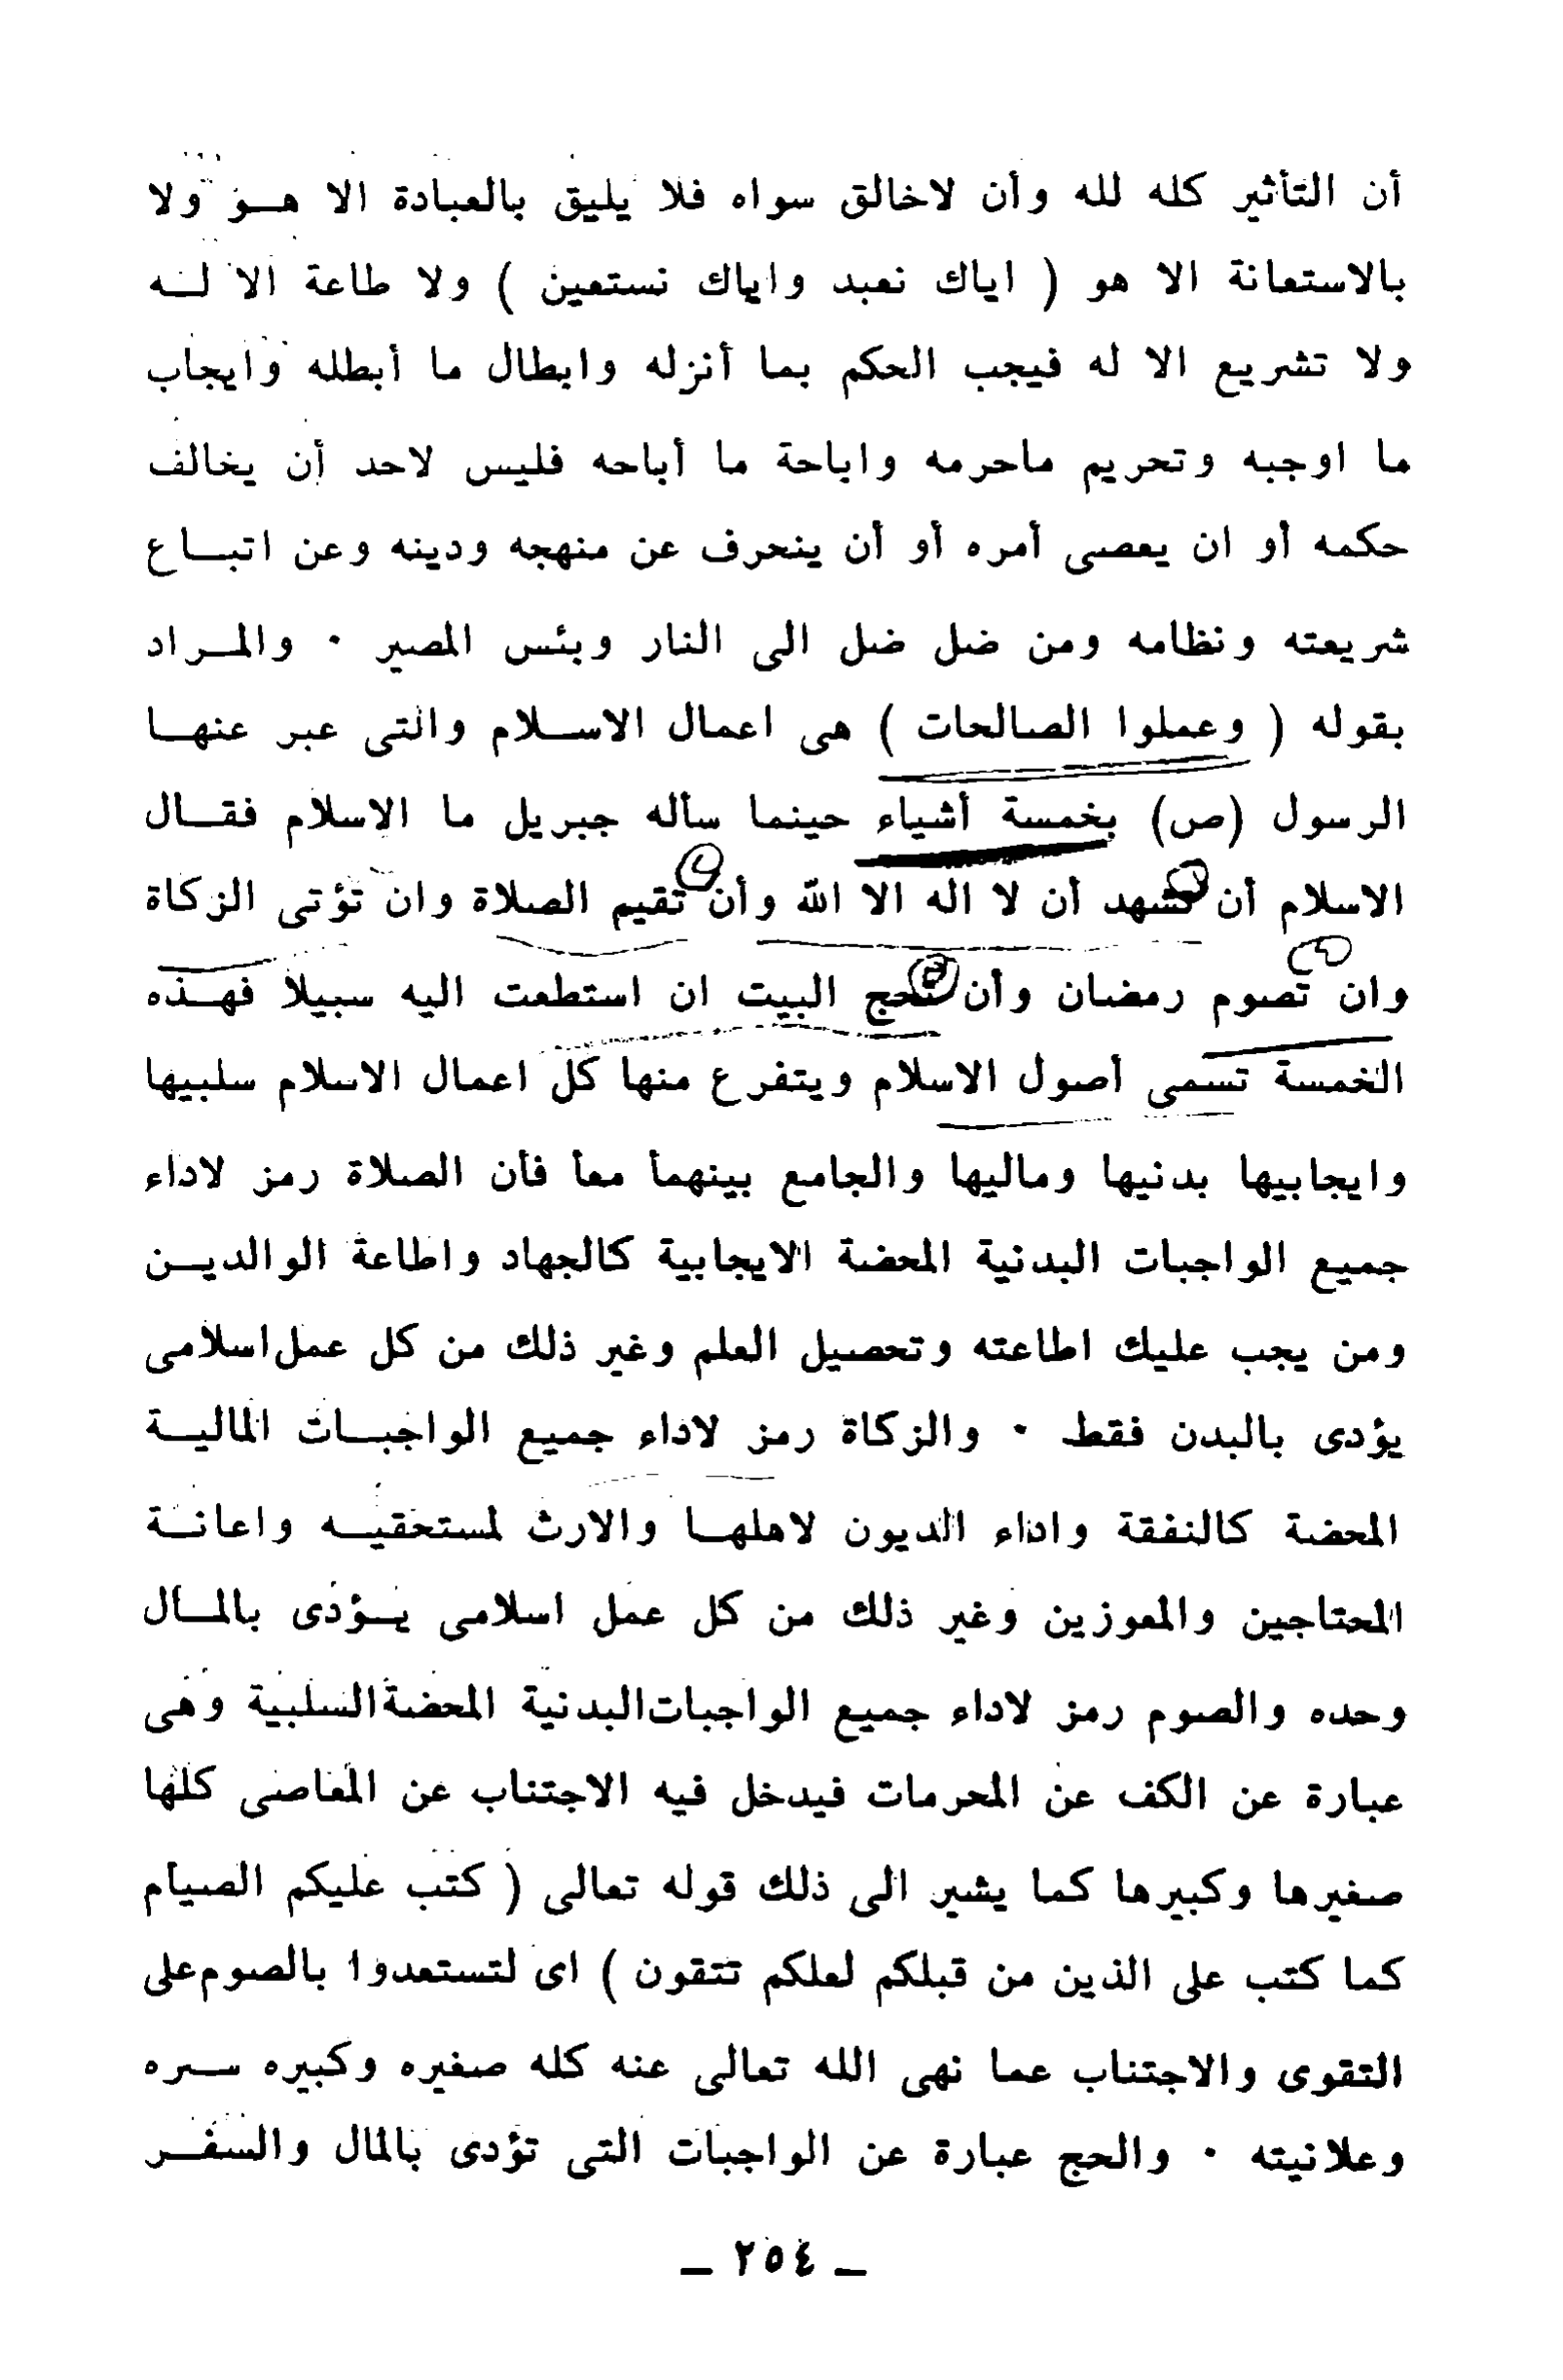 أن التأثير كله لله وأن لاخالق سواه فلا يليق بالعبادة الا هو ولا
بالاستعانة الا هو ( اياك نعبد واياك نستعين ) ولا طاعة الا له
ولا تشريع الا له فيجب الحكم بما أنزله وابطال ما أبطله وايجاب
ما اوجبه وتحريم ماحرمه واباحة ما أباحه فليس لاحد أن يخالف
حكمه أو ان يعصى أمره أو أن ينحرف عن منهجه ودينه وعن اتباع
شريعته ونظامه ومن ضل ضل الى النار وبئس المصير ٠ والمراد
بقوله ( وعملوا الصالحات ) هى اعمال الاسلام والتى عبر عنها
الرسول (ص) بخمسة أشياء حينما سأله جبريل ما الاسلام فقال
الاسلام أن تشهد أن لا اله الا الله وأن تقيم الصلاة وان تؤتى الزكاة
وان تصوم رمضان وأن تحج البيت ان استطعت اليه سبيلا فهذه
الخمسة تسمى أصول الاسلام ويتفرع منها كل اعمال الاسلام سلبيها
وايجابيها بدنيها وماليها والجامع بينهمأ معأ فأن الصلاة رمز لاداء
جميع الواجبات البدنية المحضة الايجابية كالجهاد واطاعة الوالدين
ومن يجب عليك اطاعته وتحصيل العلم وغير ذلك من كل عمل اسلامى
يؤدى بالبدن فقط ٠ والزكاة رمز لاداء جميع الواجبات المالية
المحضة كالنفقة واداء الديون لاهلها والارث لمستحقيه واعانة
المحتاجين والمعوزين وغير ذلك من كل عمل اسلامى يؤدى بالمال
وحده والصوم رمز لاداء جميع الواجبات البدنية المحضة السلبية وهى
عبارة عن الكف عن المحرمات فيدخل فيه الاجتناب عن المعاصى كلها
صغيرها وكبيرها كما يشير الى ذلك قوله تعالى ( كتب عليكم الصيام
كما كتب على الذين من قبلكم لعلكم تتقون ) اى لتستعدوا بالصوم على
التقوى والاجتناب عما نهى الله تعالى عنه كله صغيره وكبيره سره
وعلانيته ٠ والحج عبارة عن الواجبات التى تؤدى بالمال والسفر
– ٢٥٤ –